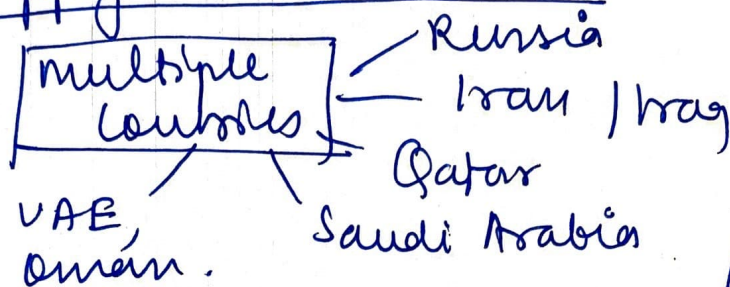 multiple
Countries
Russia
Iran / Iraq
Qatar
Saudi Arabia
UAE,
Oman.